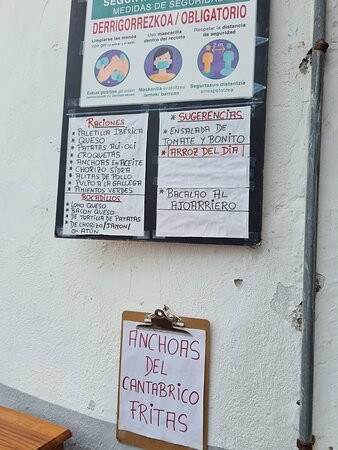 MEDIDAS DE SEGURIDAD
DERRIGORREZKOA / OBLIGATORIO
Limpiarse las manos
con gel
Usa mascarilla
dentro del recinto
Respetar la
distancia de
seguridad
RACIONES
* PALETILLA IBÉRICA
* QUESO
* PATATAS ALI-OLI
* CROQUETAS
* ANCHOAS EN ACEITE
* CHORIZO SIDRA
* ALITAS DE POLLO
* PULPO A LA GALLEGA
* PIMIENTOS VERDES
BOCADILLOS
LOMO QUESO
BACON QUESO
DE TORTILLA DE PATATAS
DE CHORIZO/JAMON/
ATÚN
SUGERENCIAS
* ENSALADA DE
TOMATE Y BONITO
* ARROZ DEL DIA
* BACALAO AL
AJOARRIERO
ANCHOAS
DEL
CANTABRICO
FRITAS